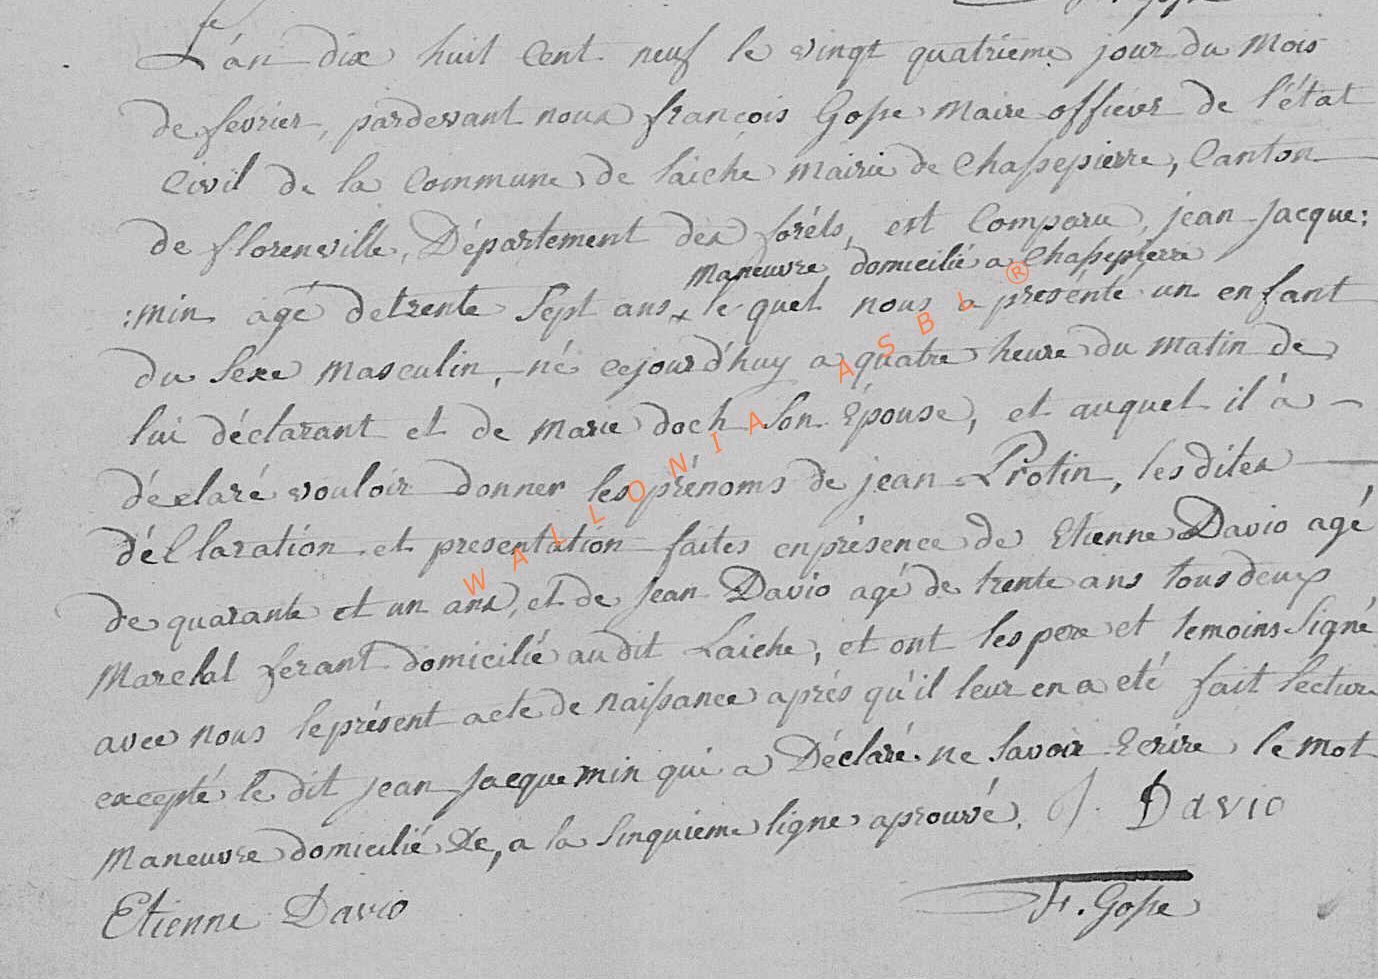 L'an dix huit cent neuf le vingt quatrieme jour du mois
de fevrier, pardevant nous françois Gosse Maire officier de l'état
Civil de la Commune de laiche Mairie de Chassepierre, Canton
de florenville, Département des foréts, est Comparu jean Jacque:
Maneuvre domicilié a Chassepierre
:min agé de trente Sept ans x le quel nous a présenté un enfant
du Sexe Masculin, né cejourd'huy a quatre heure du matin de
lui déclarant et de Marie doch Son Epouse, et auquel il à
déclaré vouloir donner les prénoms de jean Protin, les dites
déClaration et presentation faites en présence de Etienne Davio agé
de quarante et un ans, et de Jean Davio agé de trente ans tous deux
Marchal ferant domicilié au dit Laiche, et ont les pere et temoins Signé
avec nous le présent acte de naissance aprés qu'il leur en a eté fait lecture
excepté le dit Jean Jacquemin qui a Déclaré ne Savoir Ecrire le mot
Maneuvre domicilié &e, a la Sinquieme ligne aprouvé. J. Davio
Etienne Davio
F. Gosse
WALLONIA ASBL ®